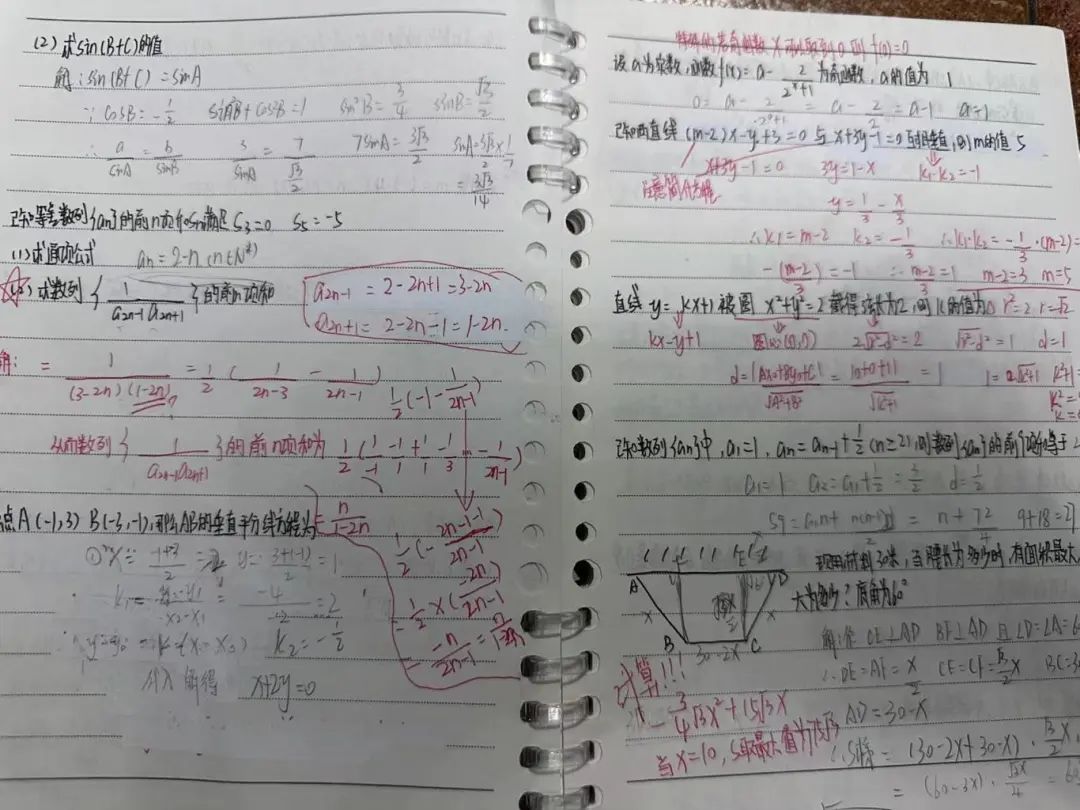 (2) 求sin(B+C)的值
解:sin(B+C)=sinA
∵ cosB=-1/2 sin²B+cos²B=1 sin²B=3/4 sinB=√3/2
∴ a/sinA=b/sinB 3/sinA=7/(√3/2) 7sinA=3√3/2 sinA=3√3/2×1/7
=3√3/14
已知等差数列{an}的前n项和Sn满足 S3=0 S5=-5
(1)求通项公式 an=2-n (n∈N*)
(2) 求数列{1/(a2n-1 a2n+1)}的前n项和
a2n-1=2-2n+1=3-2n
a2n+1=2-2n-1=1-2n.
解: =1/((3-2n)(1-2n))=1/2(1/(2n-3)-1/(2n-1)) 1/2(-1-1/(2n-1))
从而数列{1/(a2n-1a2n+1)}的前n项和为 1/2(1/-1-1/1+1/1-1/3 - 1/(2n-1))
=n/(1-2n)
1/2(-(2n-1-1)/(2n-1))
1/2×(-2n/(2n-1))
-n/(2n-1)=n/(1-2n)
点A(-1,3) B(-3,-1),那么AB的垂直平分线方程为
y=(3+(-1))/2=1
K1=(y2-y1)/(x2-x1)=-4/-2=2
K2=-1/2
代入 解得 x+2y=0
f(0)=0
设a为实数,函数f(x)=a-2/(2^x+1)为奇函数,a的值为 1
0=a-2/(2^0+1)=a-2/2=a-1 a=1
已知两直线 (m-2)x-y+3=0 与 x+3y-1=0 互相垂直,则m的值 5
x+3y-1=0 3y=1-x k1·k2=-1
y=1/3-x/3
∴k1=m-2 k2=-1/3 ∴k1·k2=-1/3·(m-2)=
-(m-2)/3=-1 ∴(m-2)/3=1 m-2=3 m=5
直线 y=kx+1 被圆 x²+y²=2 截得弦长为2,则k的值为0 r²=2 r=√2
kx-y+1 圆心(0,0) 2√(r²-d²)=2 √(r²-d²)=1 d=1
d=|Ax0+By0+C|/√(A²+B²)=|0+0+1|/√(k²+1)=1 1=√(k²+1) k²+1=
k²=
k=
已知数列{an}中,a1=1, an=an-1+1/2(n≥2),则数列{an}的前9项和等于 2
a1=1 a2=a1+1/2=3/2 d=1/2
S9=a1n+n(n-1)d/2=n+72/4 9+18=27
现用材料30米,当腰长为多少时,有面积最大
大为多少?底角为60°
A D
B 30-2x C
x x
解:作 CE⊥AD BF⊥AD 且∠D=∠A=6
∴DE=AF=x/2 CE=CF=√3/2x BC=3
计算!!!
-3/4√3x²+15√3x AD=30-x
当x=10,S取最大值为75√3 ∴S梯=(30-2x+30-x)·√3/2x
=(60-3x)·√3x/4=60